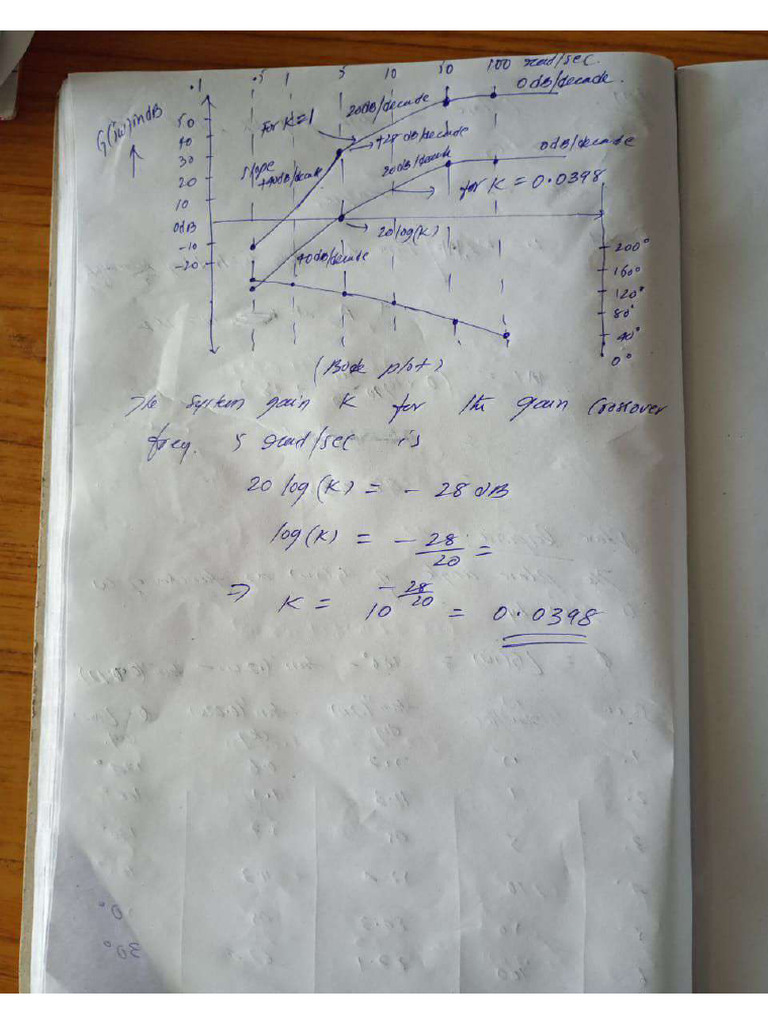 .1 .5 1 5 10 50 100 rad/sec.
G(jω) in dB
50
40
30
20
10
0dB
-10
-20
For K=1
20dB/decade
0dB/decade.
+28dB/decade
slope
+40dB/decade
20dB/decade
0dB/decade
for K = 0.0398
20log(K)
40dB/decade
200°
160°
120°
80°
40°
0°
(Bode plot)
The system gain K for the gain crossover
freq. 5 rad/sec is
20 log(K) = - 28 dB
log(K) = - 28/20 =
⇒ K = 10^(-28/20) = 0.0398